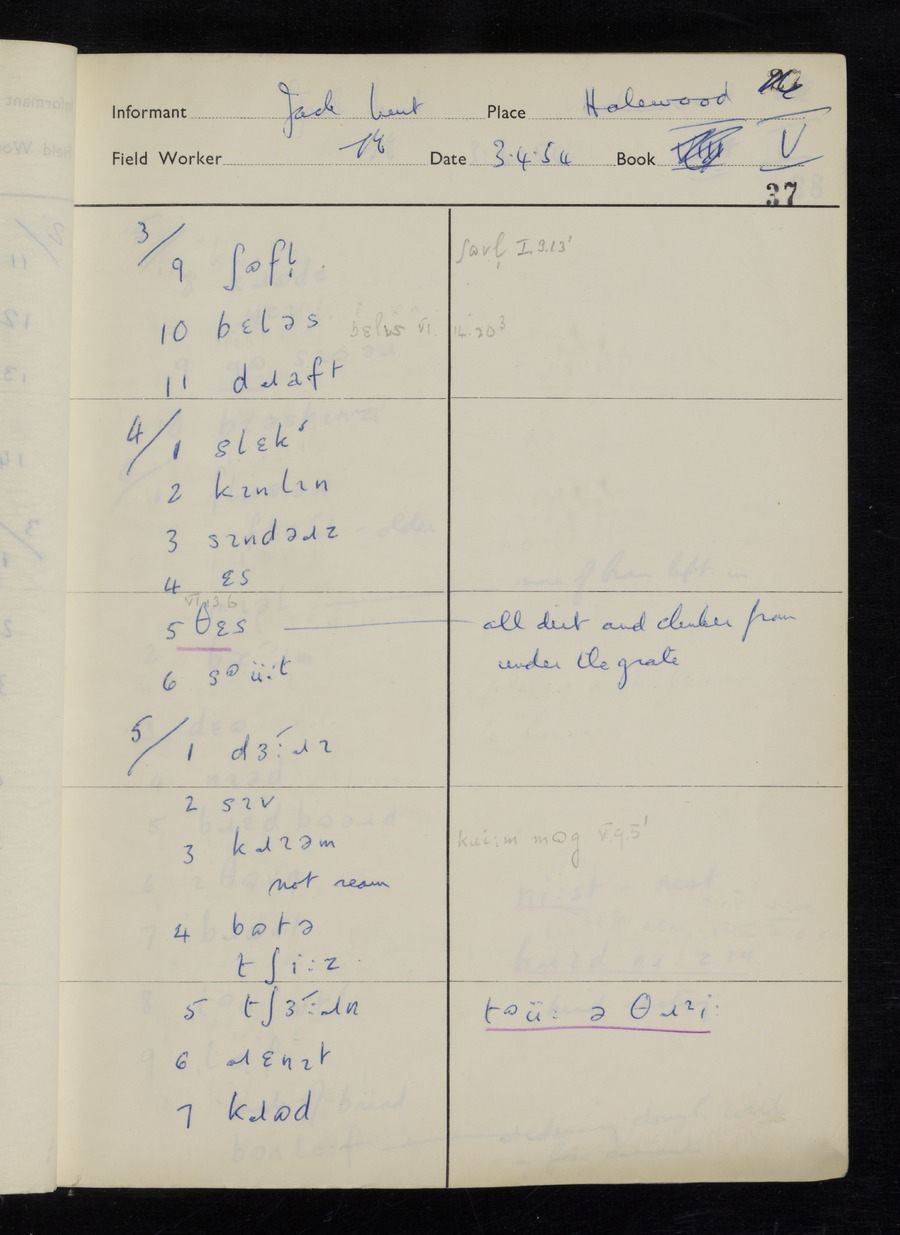 Informant Jack Place Halewood
Field Worker Date 3.4.54 Book V
37
3/
9 ʃɵfl̩ ʃɵvl̩ I.9.13'
10 bɛləs VI. 14.20³
11 dɹaft
4/
1 slɛk
2 kɪnlɪn
3 sɪndəɹz
4 ɛs
VI.13.6
5 θɛs all dirt and clinker from
under the grate
6 sɵü:t
5/
1 dɜ:ɹɪ
2 sɪv
3 kɹɪəm mɵg V.9.5'
not ream
4 bɵtə
tʃi:z
5 tʃɜ:ɹn tɵü: ə θɹɪi:
6 ɹɛnɪt
7 kɹɵd